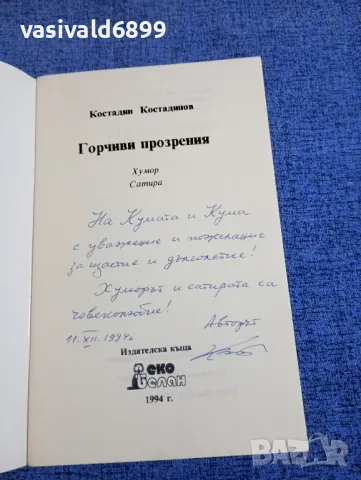 vasivald6899
Костадин Костадинов
Горчиви прозрения
Хумор
Сатира
На Кумата и Кума
с уважение и пожелание
за щастие и дълголетие!
Хуморът и сатирата са
човеколюбие!
Авторът
11.XII.1994г.
Издателска къща
еко
1994 г.
BAZAR
bg